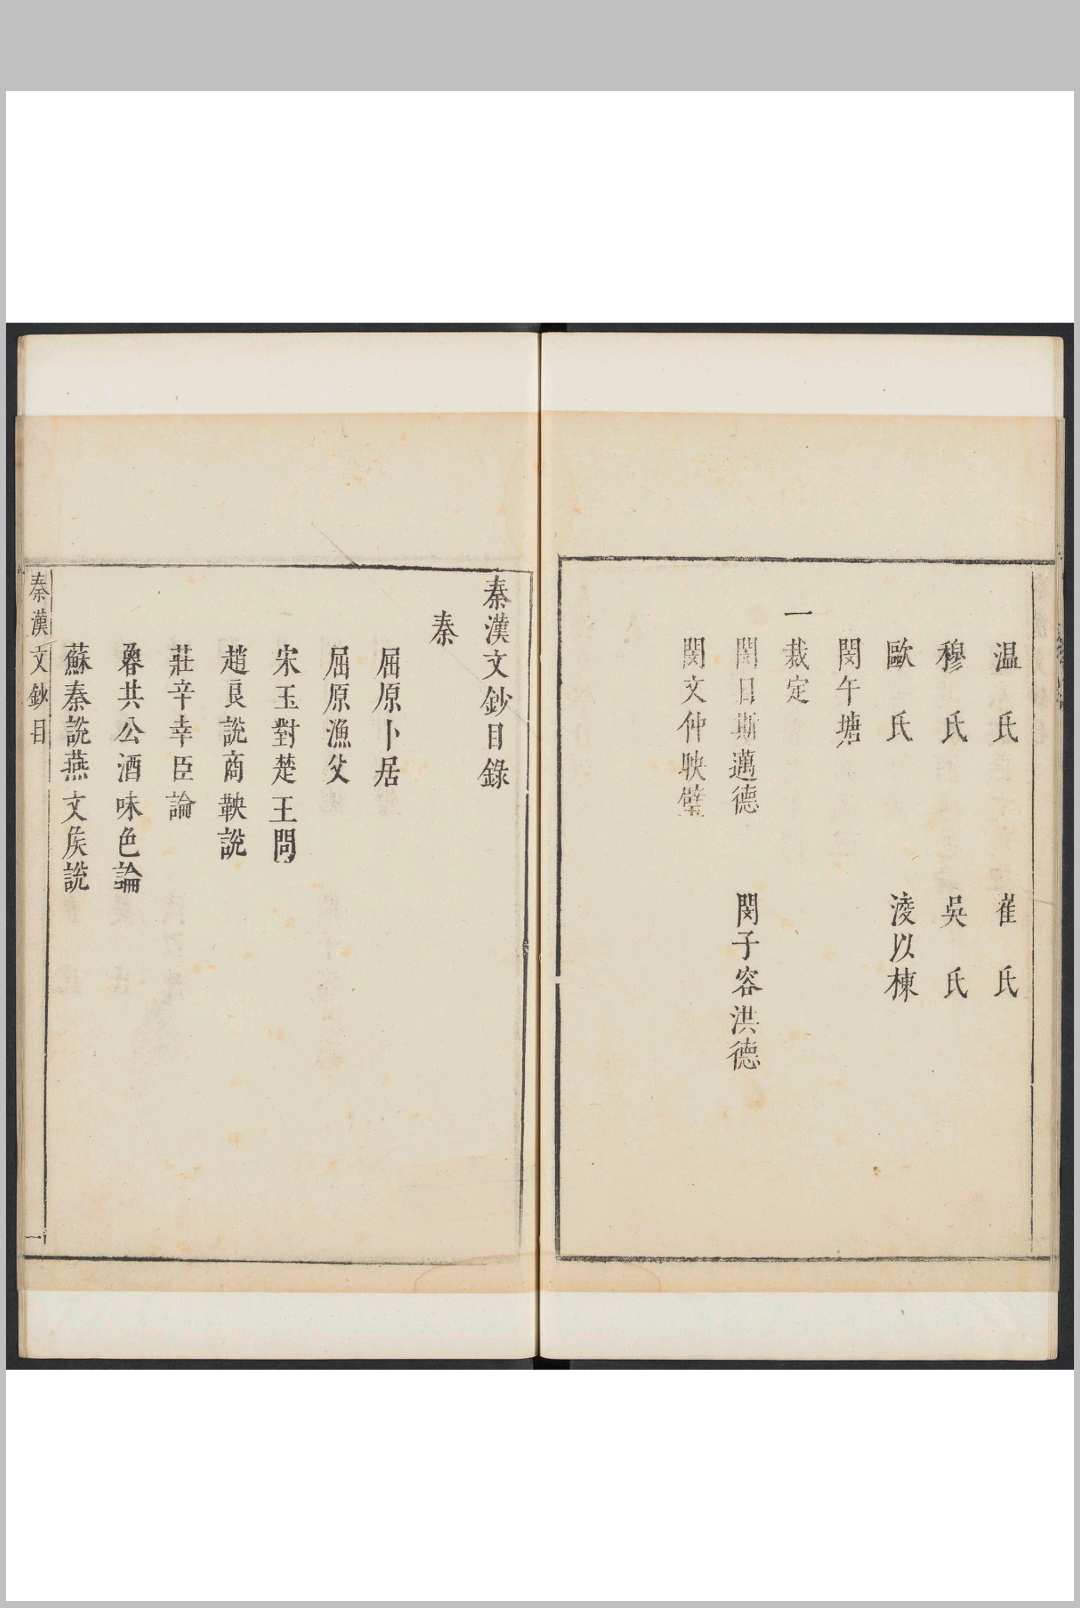 温氏 崔氏
穆氏 吳氏
歐氏 淩以棟
閔午塘
一裁定
閔日斯邁德 閔子容洪德
閔文仲暎璧
秦漢文鈔目錄
秦
屈原卜居
屈原漁父
宋玉對楚王問
趙良說商鞅說
莊辛幸臣論
魯共公酒味色論
蘇秦說燕文矦說
秦漢文鈔目 一